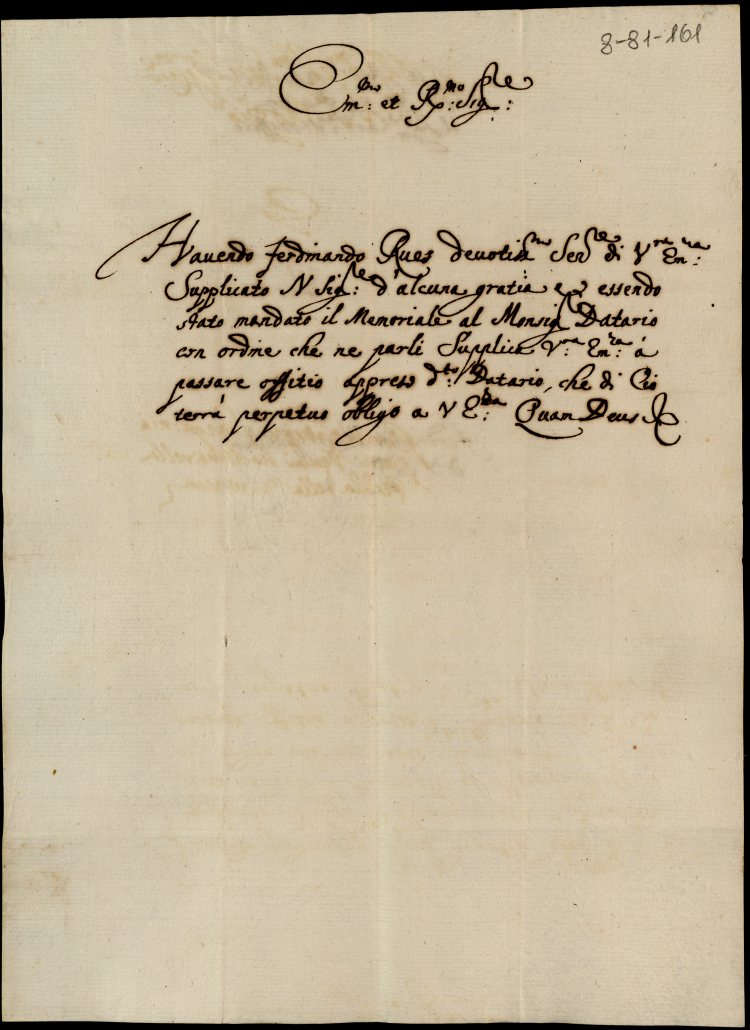 8-81-161
Em:mo et R:mo Sig:re
Hauendo Ferdinando Rues deuotiss:mo Ser:re di V:ra Em:za
Supplicato N Sig:re d'alcuna gratia e, essendo
stato mandato il Memoriale al Monsig:r Datario
con ordine che ne parli Supplica V:ra Em:za à
passare offitio appreso d:to Datario, che di Ciò
terrà perpetuo obligo a V E:za Quam Deus &c